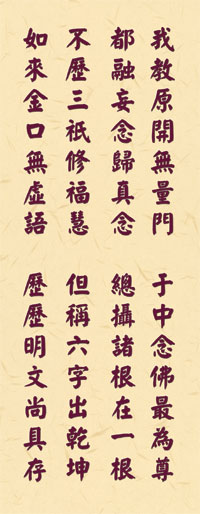 我教原開無量門
都融妄念歸真念
不歷三祇修福慧
如來金口無虛語
于中念佛最為尊
總攝諸根在一根
但稱六字出乾坤
歷歷明文尚具存